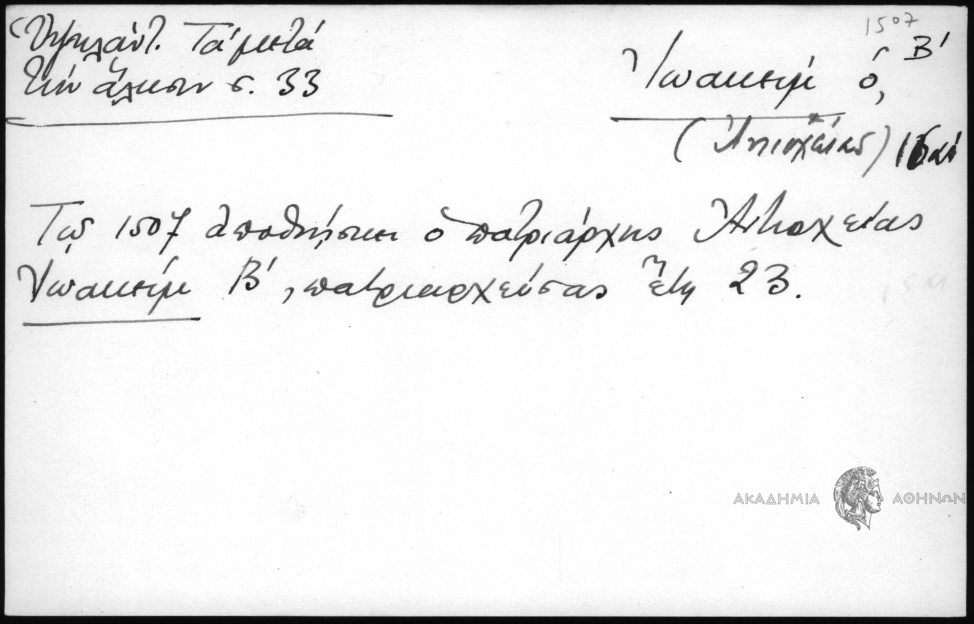 Ὑψηλάντ. Τά μετά
τήν ἅλωσιν σ. 33
1507
Ἰωακείμ ὁ, Β'
(Ἀντιοχείας)
Τῷ 1507 ἀποθνήσκει ὁ πατριάρχης Ἀντιοχείας
Ἰωακείμ Β', πατριαρχεύσας ἔτη 23.
ΑΚΑΔΗΜΙΑ ΑΘΗΝΩΝ